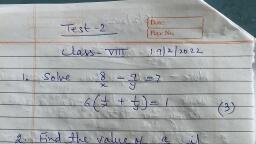 Test-2
Date:
Page No:
Class-VIII 19/2/2022
1. Solve 8/x - 7/y = 7
6(1/x + 1/y) = 1 (3)
2. Find the value of a if